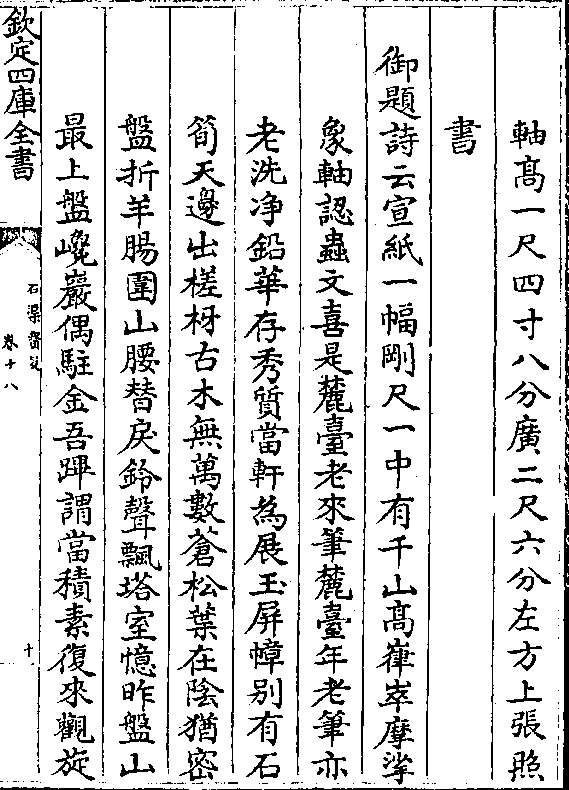 軸髙一尺四寸八分廣二尺六分左方上張照
書
御題詩云宣紙一幅剛尺一中有千山髙嵂崒摩挲
象軸認蟲文喜是麓臺老來筆麓臺年老筆亦
老洗净鉛華存秀質當軒為展玉屏幛别有石
筍天邊出槎枒古木無萬數蒼松葉在陰猶密
盤折羊腸圍山腰替戾鈴聲飄塔室憶昨盤山
最上盤巉巖偶駐金吾蹕謂當積素復來觀旋
欽定四庫全書
石渠寶笈
卷十八
十